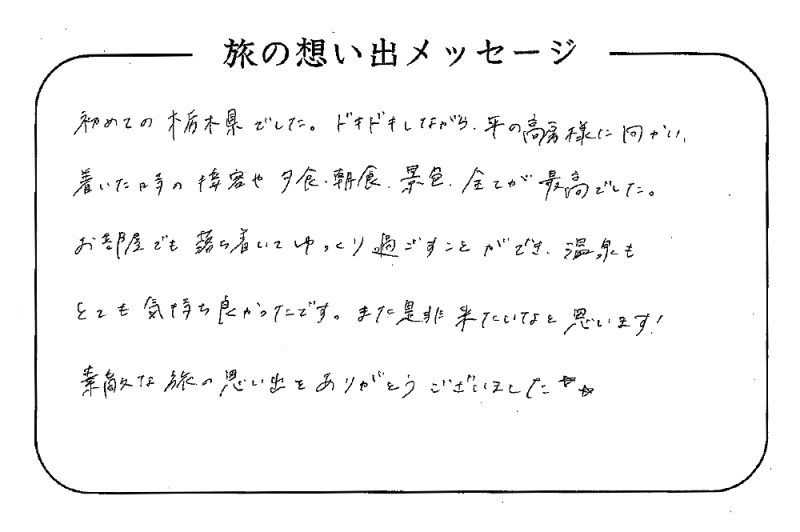 旅の想い出メッセージ
初めての栃木県でした。ドキドキしながら、平の高房様に向かい、
着いた時の接客や夕食、朝食、景色、全てが最高でした。
お部屋でも落ち着いてゆっくり過ごすことができ、温泉も
とても気持ち良かったです。また是非来たいなと思います!
素敵な旅の思い出をありがとうございました☆☆